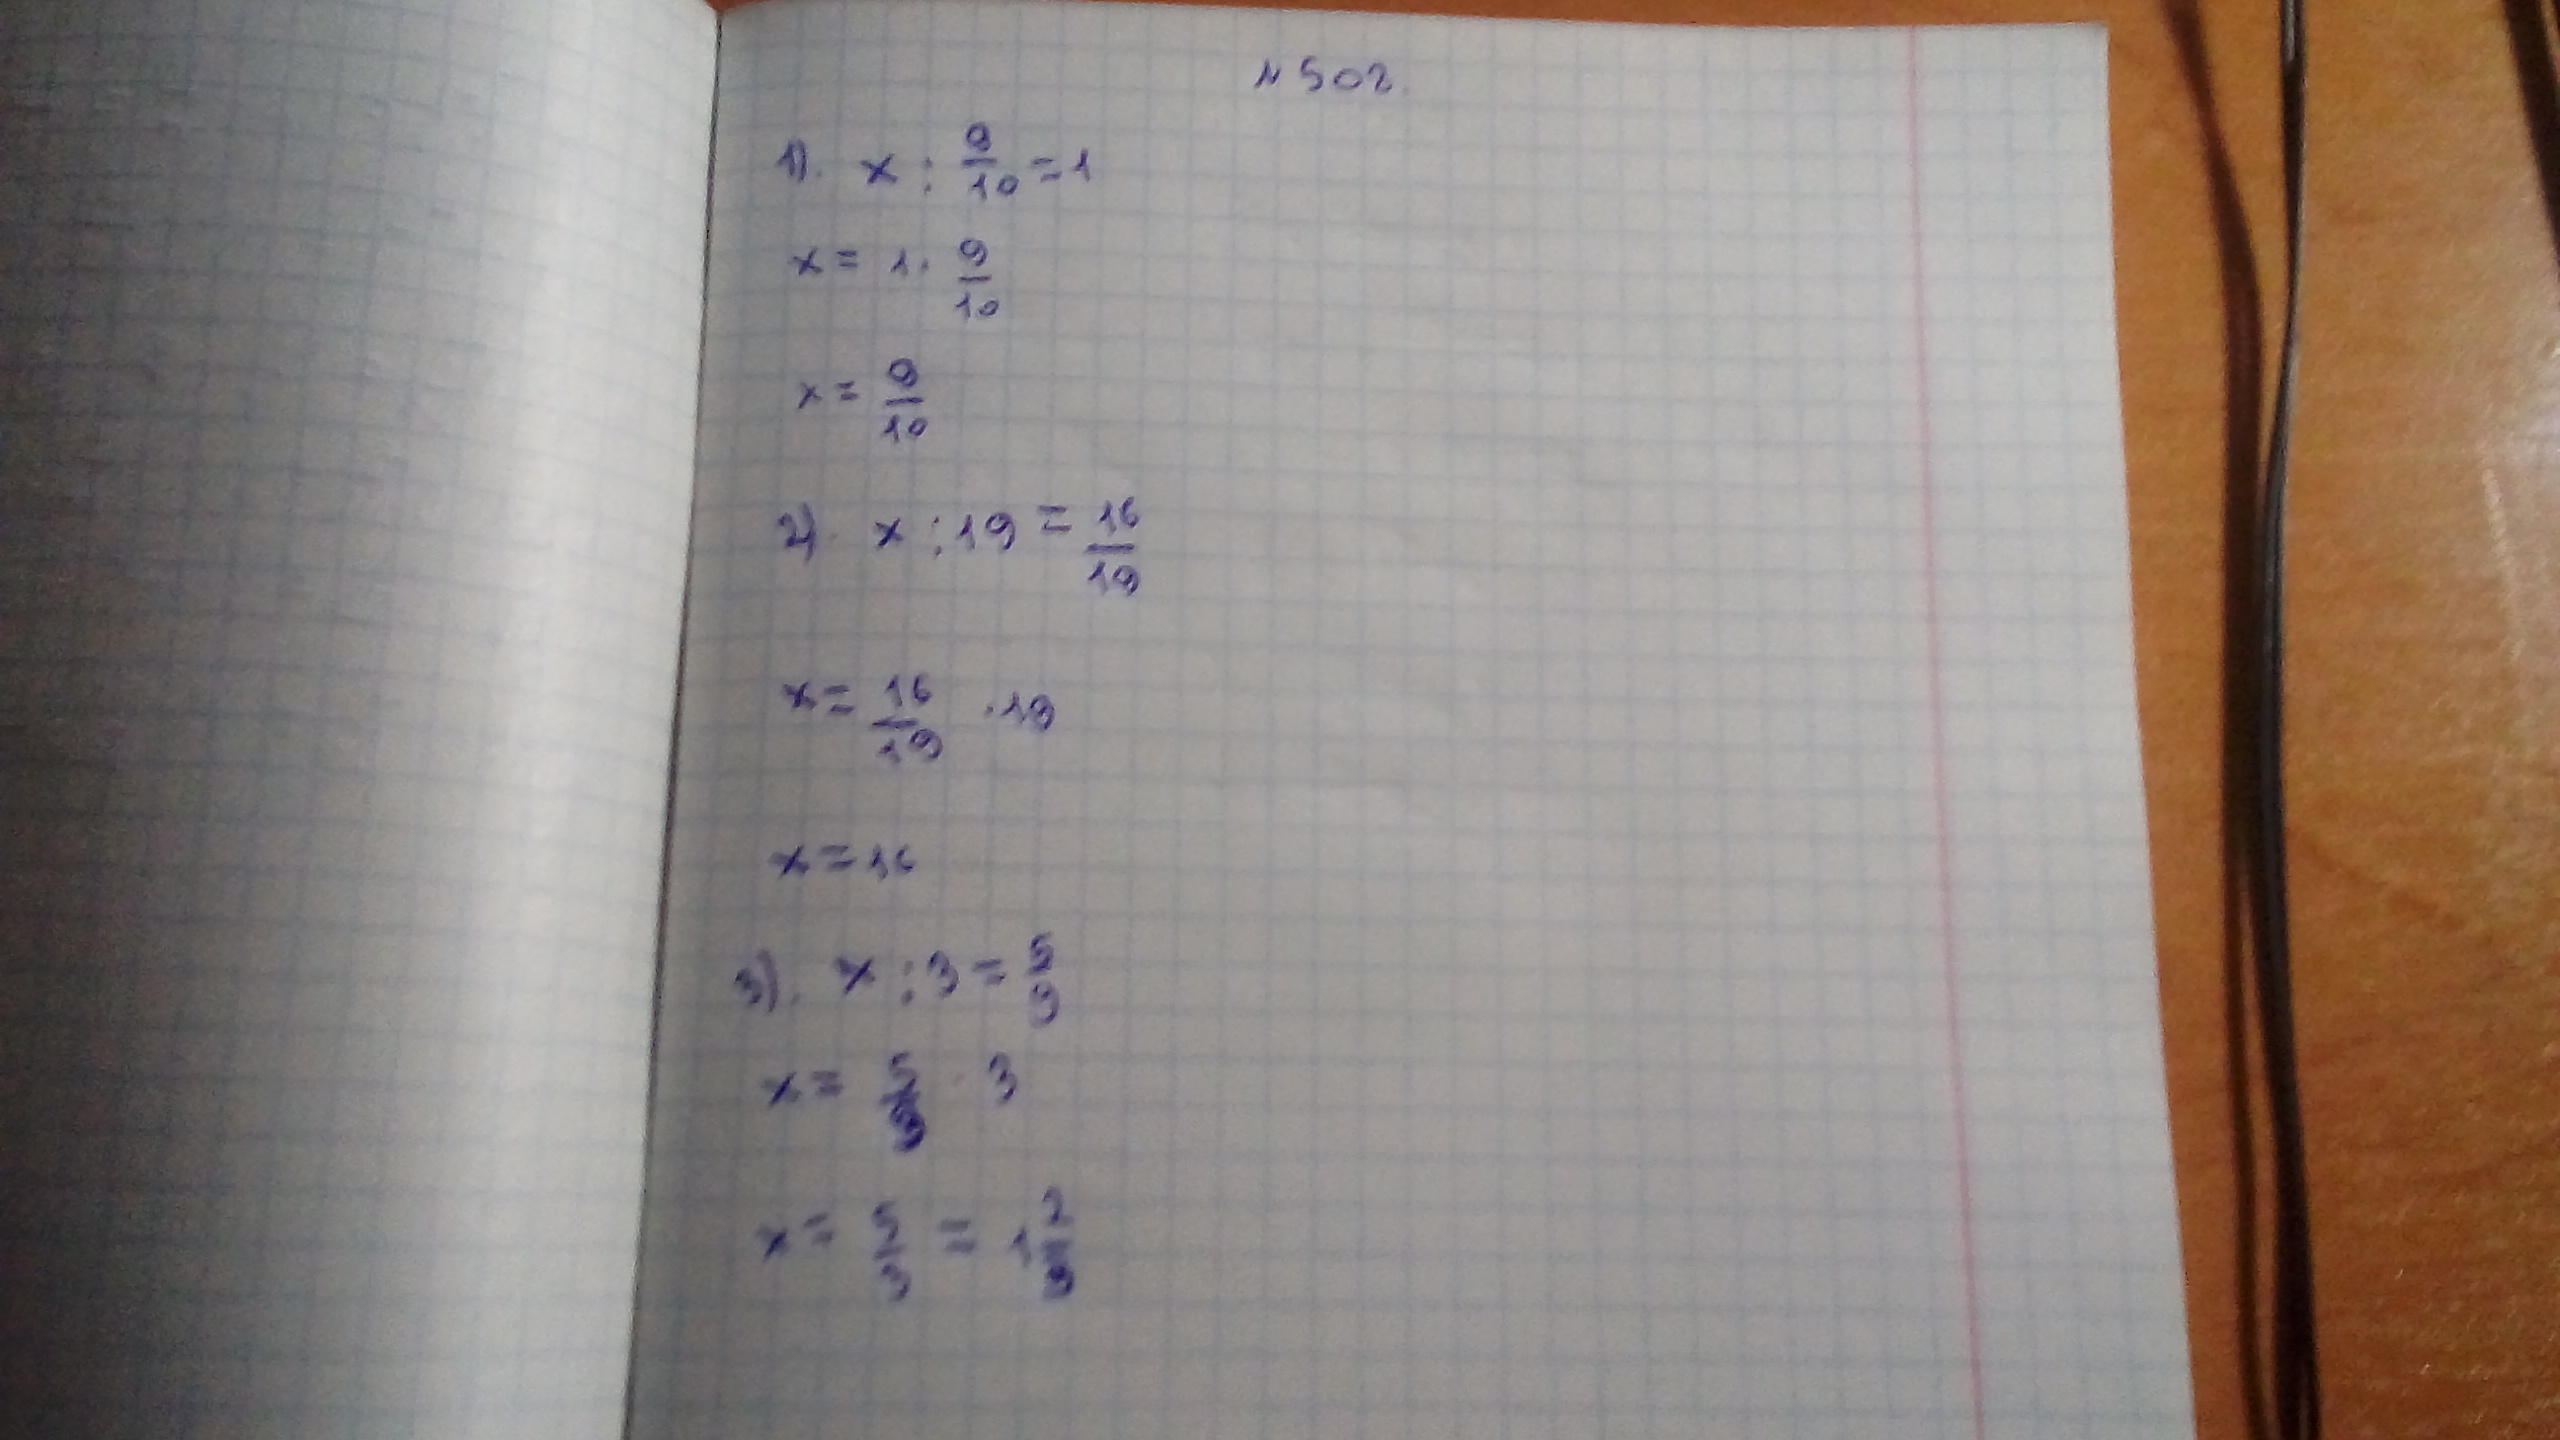 № 502.
1). x : 9/10 = 1
x = 1 · 9/10
x = 9/10
2). x : 19 = 16/19
x = 16/19 · 19
x = 16
3). x : 3 = 5/9
x = 5/9 · 3
x = 5/3 = 1 2/3